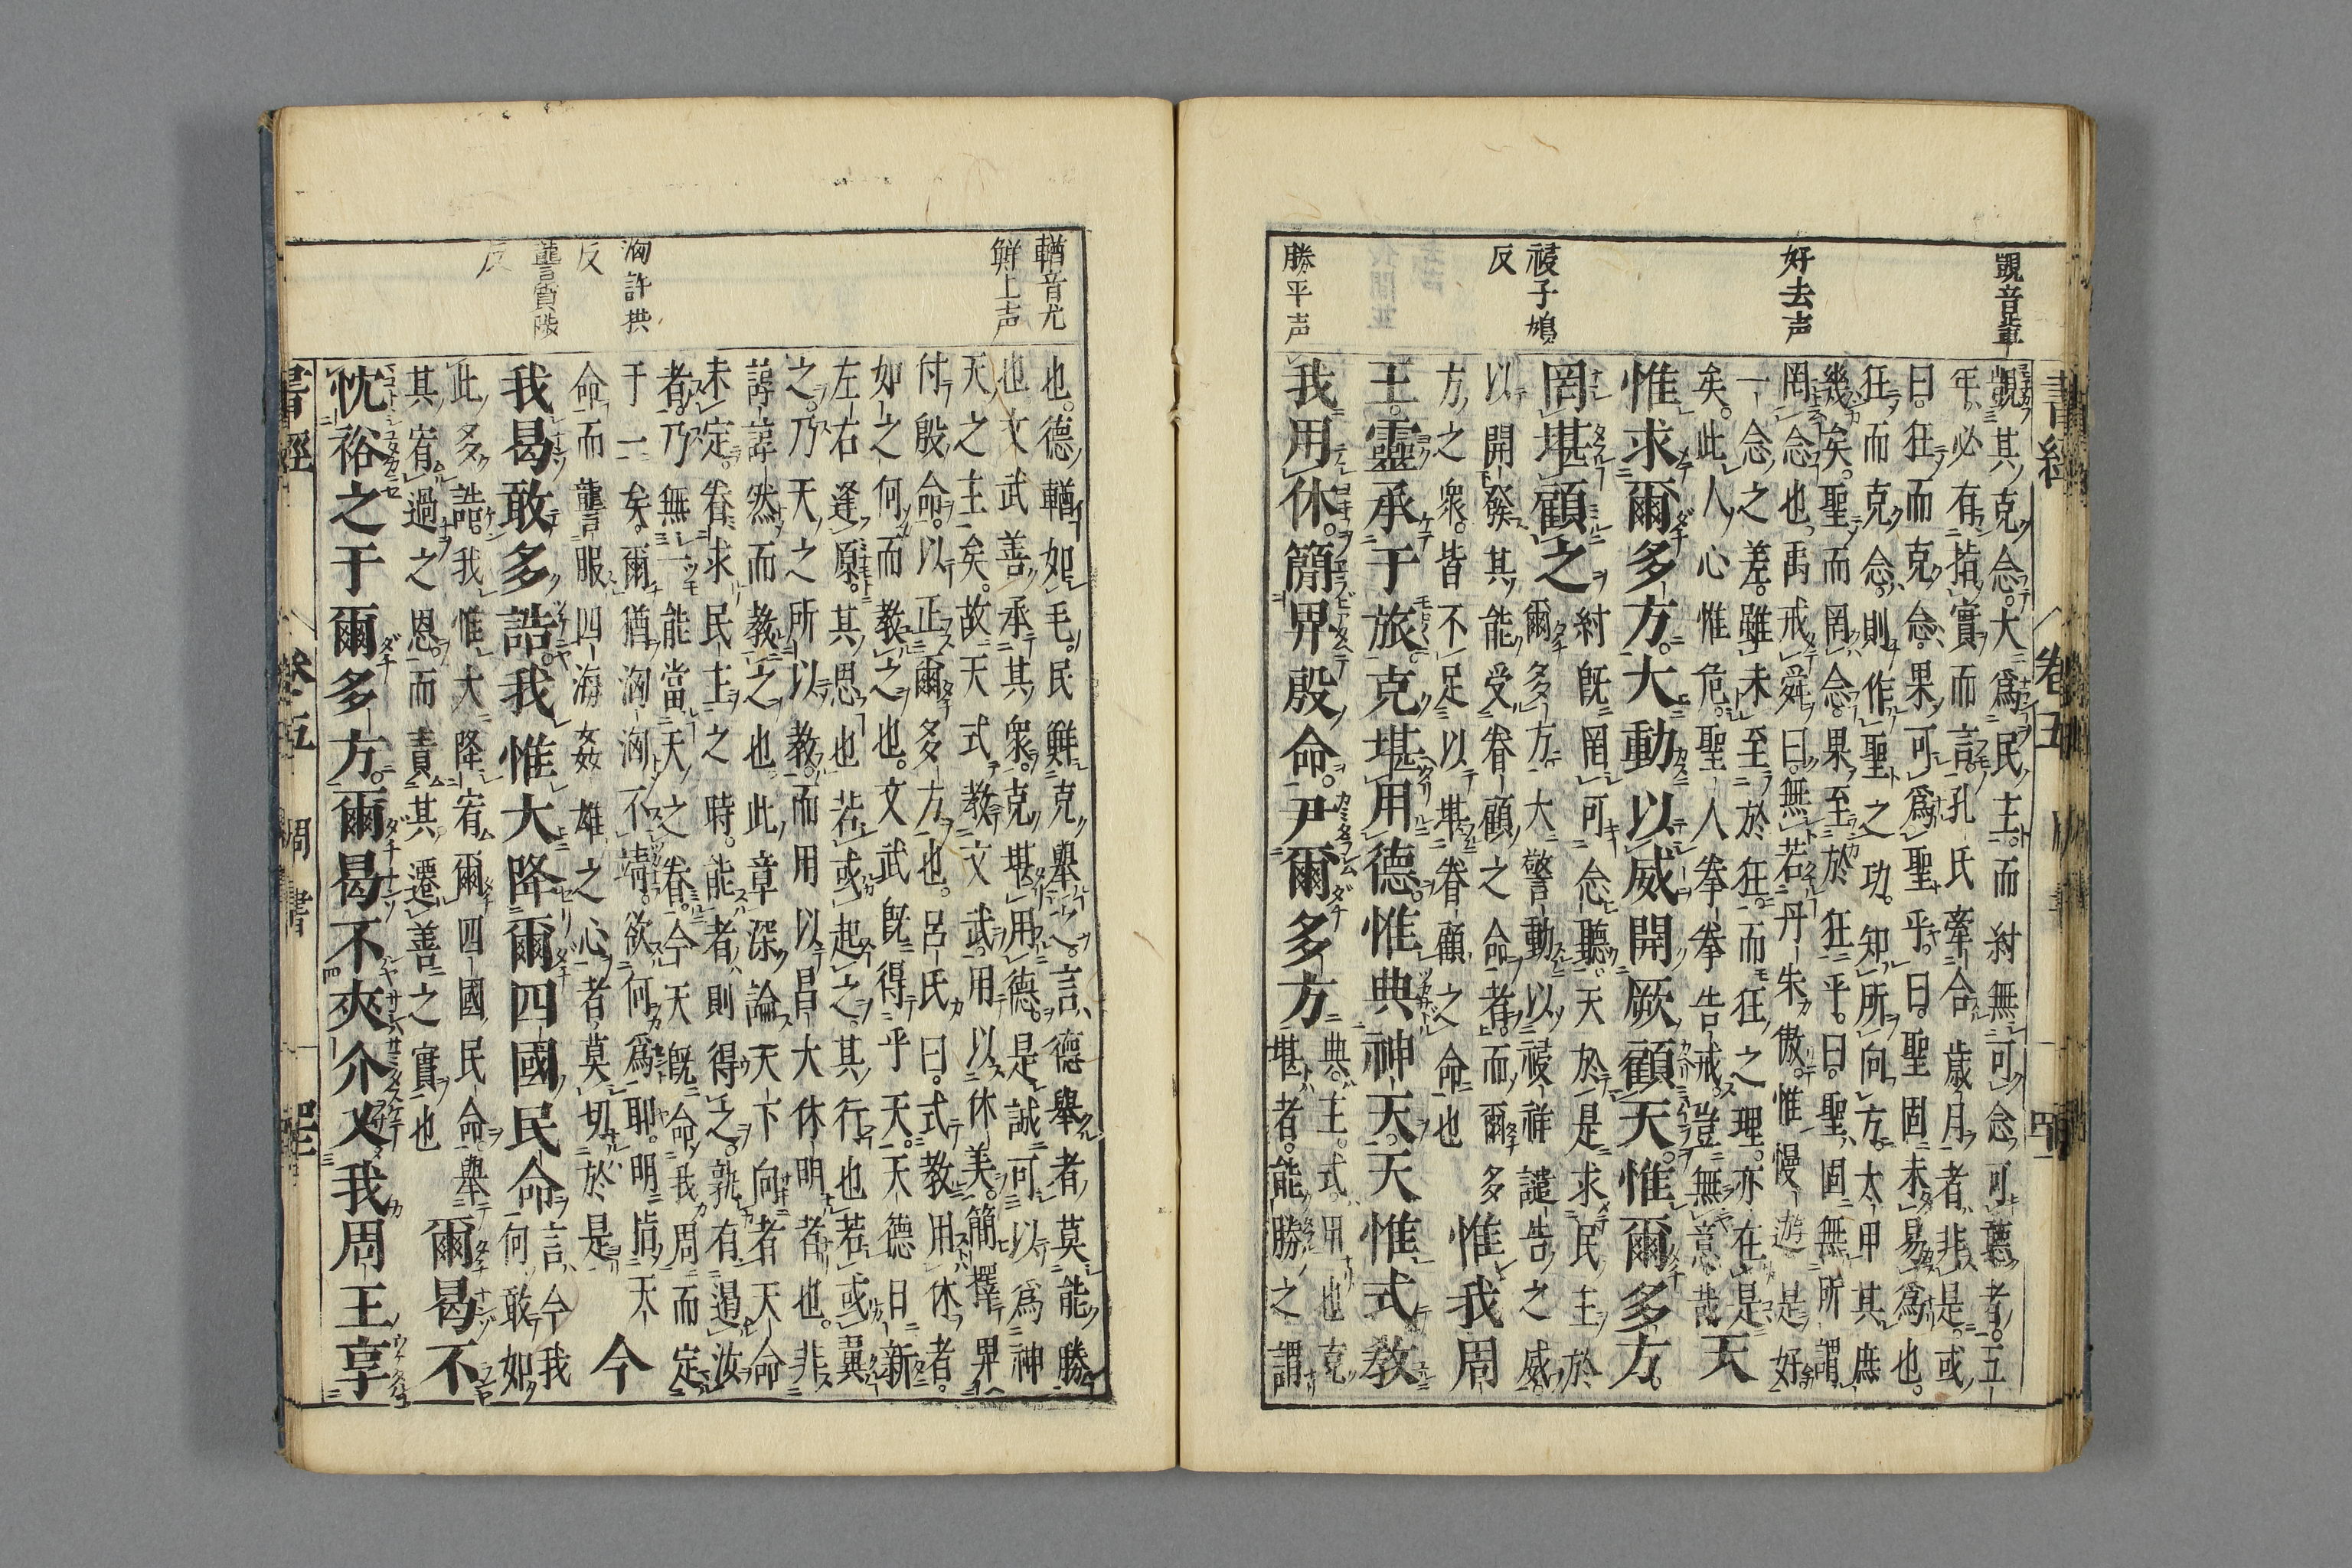 好去声
祲子鴆
反
勝平声
書經 卷五
覬其克念大爲民主而紂無可念可聽者五
年必有指實而言孔氏牽合歲月者非是或
曰狂而克念果可爲聖乎曰聖固未易爲也
狂而克念則作聖之功知所向方太甲其庶
幾矣聖而罔念果至於狂乎曰聖固無所謂
罔念也禹戒舜曰無若丹朱傲惟慢遊是好
一念之差雖未至於狂而狂之理亦在是
矣此人心惟危聖人拳拳告戒豈無意哉
天
惟求爾多方大動以威開厥顧天惟爾多方
罔堪顧之
紂既罔可念聽天於是求民主於
爾多方大警動以祲祥譴告之威
以開發其能受眷顧之命者而爾多
方之衆皆不足以堪眷顧之命也
惟我周
王靈承于旅克堪用德惟典神天天惟式教
我用休簡畀殷命尹爾多方
典主式用也克
堪者能勝之謂
輶音尤
鮮上声
洶許拱
反
讋質陟
反
也德輶如毛民鮮克舉之言德舉者莫能勝
也文武善承其衆克堪用德是誠可以爲神
天之主矣故天式教文武用以休美簡擇畀
付殷命以正爾多方也呂氏曰式教用休者
如之何而教之也文武既得乎天天德日新
左右逢原其思也若或起之其行也若或翼
之乃天之所以教而用以昌大休明者也非
諄諄然而教之也此章深論天下向者天命
未定眷求民主之時能者則得之孰有遏汝
者乃無一能當天之眷今天既命我周而定
于一矣爾猶洶洶不靖欲何爲耶明指天
命而讋服四海姦雄之心者莫切於是
今
我曷敢多誥我惟大降爾四國民命
言今我
何敢如
此多誥我惟大降宥爾四國民命舉
其宥過之恩而責其遷善之實也
爾曷不
忱裕之于爾多方爾曷不夾介乂我周王享
書經 卷五 周書